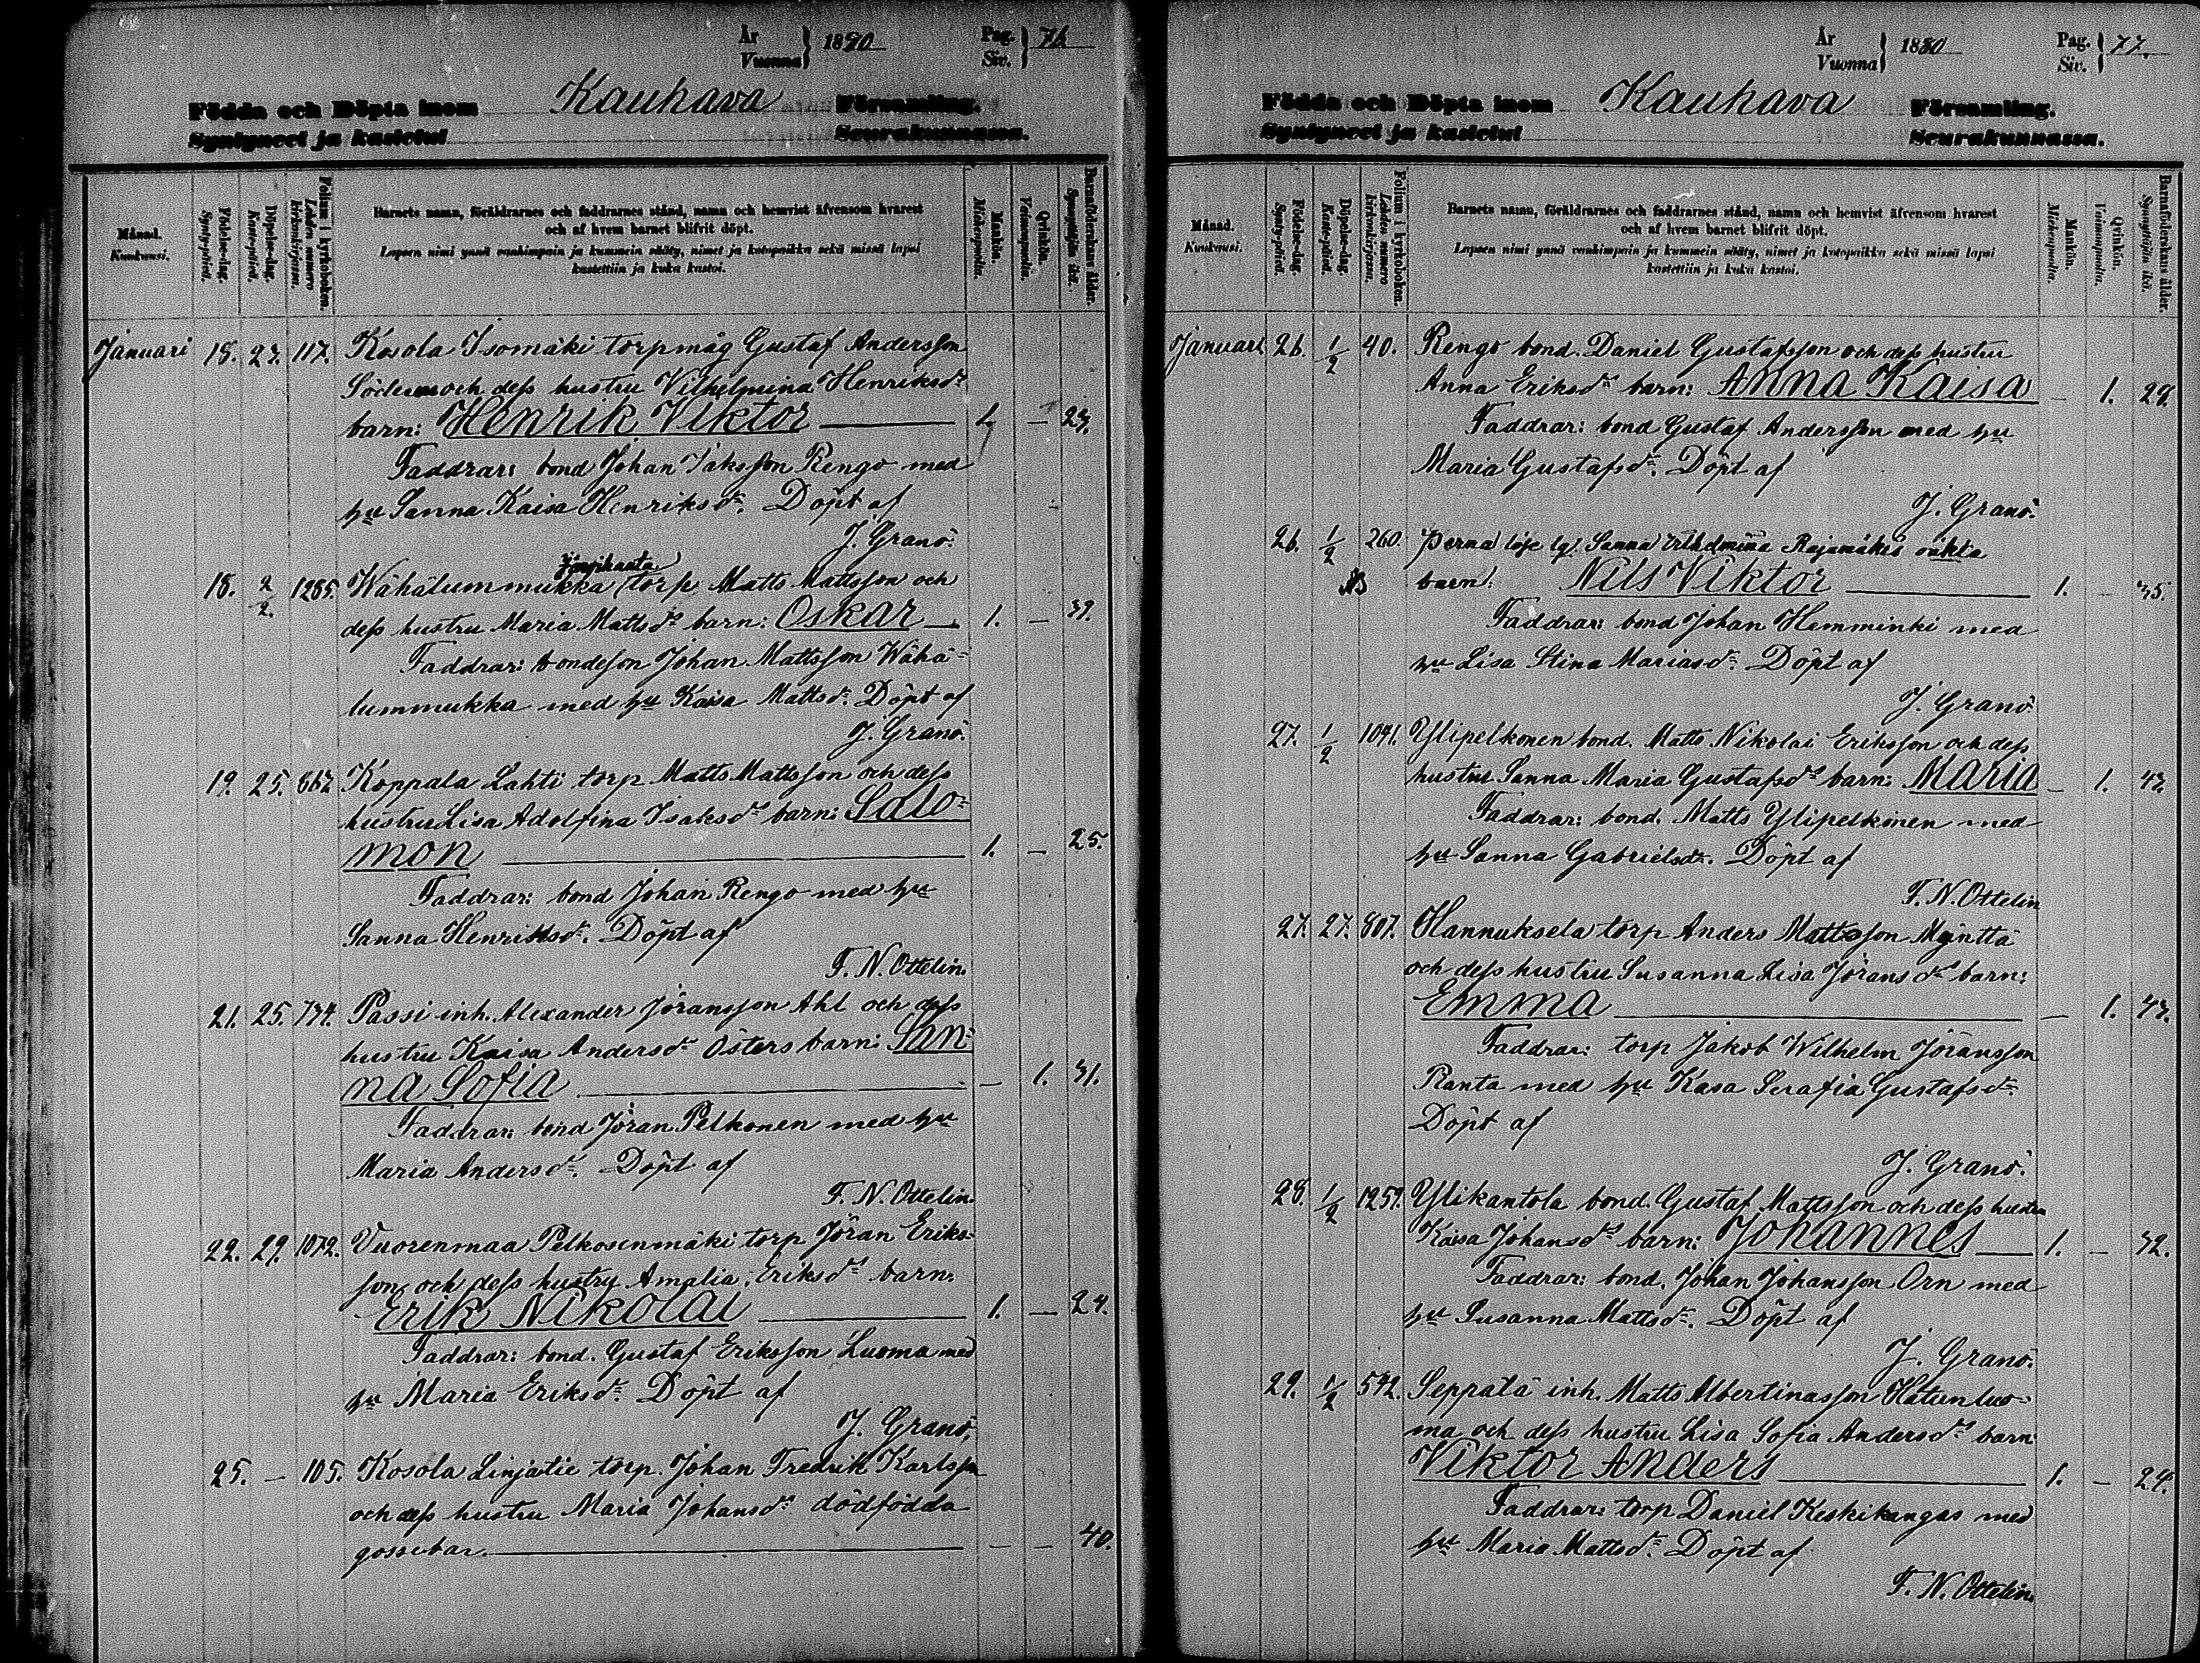 År
Vuonna } 1890
Pag.
Siv. } 76
Födda och Döpta inom Kauhava Församling.
Syntyneet ja kastetut Seurakunnassa.
Månad.
Kuukausi.
Födelse-dag.
Synty-päivä.
Döpelse-dag.
Kaste-päivä.
Folium i kyrkoboken.
Lehden numero
kirkonkirjassa.
Barnets namn, föräldrarnes och faddrarnes stånd, namn och hemvist äfvensom hvarest
och af hvem barnet blifvit döpt.
Lapsen nimi ynnä vanhimpain ja kummein sääty, nimet ja kotopaikka sekä missä lapsi
kastettiin ja kuka kastoi.
Mankön.
Miehenpuolta.
Qvinkön.
Vaimonpuolta.
Barnaföderskans ålder.
Synnyttäjän ikä.
Januari 18. 27. 117. Kosola Isomäki torpmåg Gustaf Andersson
och dess hustru Vilhelmina Henriksdr
barn: Henrik Viktor 1. — 23.
Faddrar: bond Johan Isaksson Rengo med
hu Sanna Kaisa Henriksdr. Döpt af
J. Granö.
18. 2/2. 1285. Wähälummukka torp Matts Mattsson och
dess hustru Maria Mattsdr barn: Oskar 1. — 39.
Faddrar: bondeson Johan Mattsson Wähä-
lummukka med hu Kaisa Mattsdr. Döpt af
J. Granö.
19. 25. 667. Koppala Lahti torp Matts Mattsson och dess
hustru Lisa Adolfina Isaksdr barn: Salo-
mon 1. — 25.
Faddrar: bond Johan Rengo med hu
Sanna Henriksdr. Döpt af
F. N. Ottelin.
21. 25. 734. Passi inh. Alexander Jöransson Ahl och dess
hustru Kaisa Andersdr Östers barn: San-
na Sofia — 1. 31.
Faddrar: bond Jöran Pelkonen med hu
Maria Andersdr. Döpt af
F. N. Ottelin.
22. 29. 1072. Vuorenmaa Pelkosenmäki torp Jöran Eriks-
son och dess hustru Amalia Eriksdr barn:
Erik Nikolai 1. — 24.
Faddrar: bond. Gustaf Eriksson Luoma med
hu Maria Eriksdr. Döpt af
J. Granö.
25. — 105. Kosola Linjatie torp. Johan Fredrik Karlsson
och dess hustru Maria Johansdr dödfödda
gossebar. — — 40.
År
Vuonna } 1890
Pag.
Siv. } 77.
Födda och Döpta inom Kauhava Församling.
Syntyneet ja kastetut Seurakunnassa.
Månad.
Kuukausi.
Födelse-dag.
Synty-päivä.
Döpelse-dag.
Kaste-päivä.
Folium i kyrkoboken.
Lehden numero
kirkonkirjassa.
Barnets namn, föräldrarnes och faddrarnes stånd, namn och hemvist äfvensom hvarest
och af hvem barnet blifvit döpt.
Lapsen nimi ynnä vanhimpain ja kummein sääty, nimet ja kotopaikka sekä missä lapsi
kastettiin ja kuka kastoi.
Mankön.
Miehenpuolta.
Qvinkön.
Vaimonpuolta.
Barnaföderskans ålder.
Synnyttäjän ikä.
Januari 26. 1/2 40. Rengo bond. Daniel Gustafsson och dess hustru
Anna Eriksdr barn: Anna Kaisa — 1. 29.
Faddrar: bond Gustaf Andersson med hu
Maria Gustafsdr. Döpt af
J. Granö.
26. 1/2 260. Perna Sanna Rajamäkis oäkta
barn: Nils Viktor 1. — 35.
Faddrar: bond Johan Hemminki med
hu Lisa Stina Mariasdr. Döpt af
J. Granö.
27. 1/2 1091. Ylipelkonen bond. Matts Nikolai Eriksson och dess
hustru Sanna Maria Gustafsdr barn: Maria — 1. 43.
Faddrar: bond. Matts Ylipelkonen med
hu Sanna Gabrielsdr. Döpt af
F. N. Ottelin
27. 27. 807. Hannuksela torp Anders Mattsson Mänttä
och dess hustru Susanna Lisa Jöransdr barn:
Emma — 1. 43.
Faddrar: torp Jakob Wilhelm Jöransson
Ranta med hu Kasa Serafia Gustafsdr.
Döpt af
J. Granö.
28. 1/2 1259. Ylikantola bond. Gustaf Mattsson och dess hustru
Kaisa Johansdr barn: Johannes 1. — 32.
Faddrar: bond. Johan Johansson Orn med
hu Susanna Mattsdr. Döpt af
J. Granö.
29. 1/2 592. Seppälä inh. Matts Albertinasson Hatunluo-
ma och dess hustru Lisa Sofia Andersdr barn
Viktor Anders 1. — 24.
Faddrar: torp Daniel Keskikangas med
hu Maria Mattsdr. Döpt af
F. N. Ottelin.